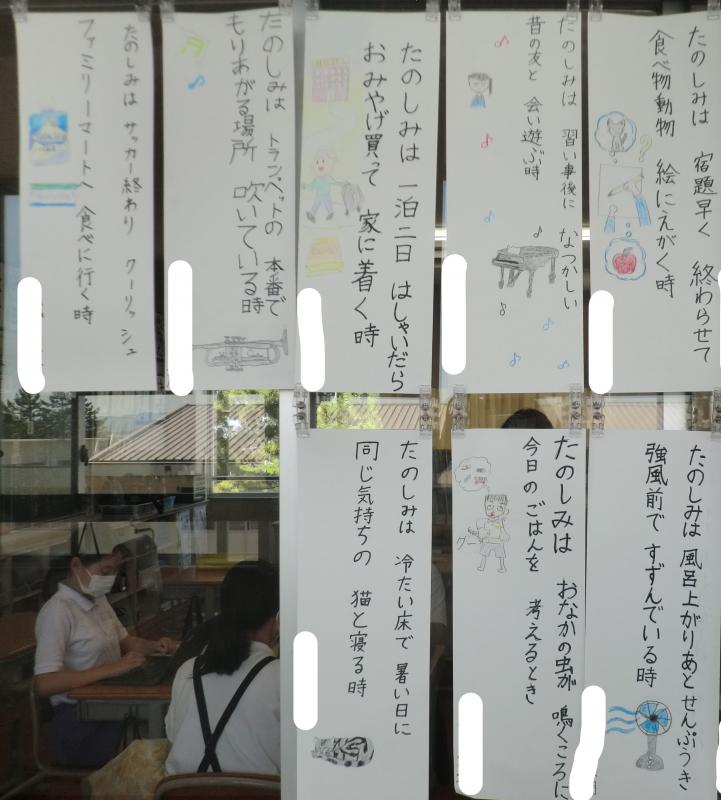 たのしみは 宿題早く 終わらせて
食べ物動物 絵にえがく時
たのしみは 習い事後に なつかしい
昔の友と 会い遊ぶ時
たのしみは 一泊二日 はしゃいだら
おみやげ買って 家に着く時
たのしみは トランペットの 本番で
もりあがる場所 吹いている時
たのしみは サッカー終わり クーリッシュ
ファミリーマートへ 食べに行く時
たのしみは 風呂上がりあと せんぷうき
強風前で すずんでいる時
たのしみは おなかの虫が 鳴くころに
今日のごはんを 考えるとき
グー
たのしみは 冷たい床で 暑い日に
同じ気持ちの 猫と寝る時